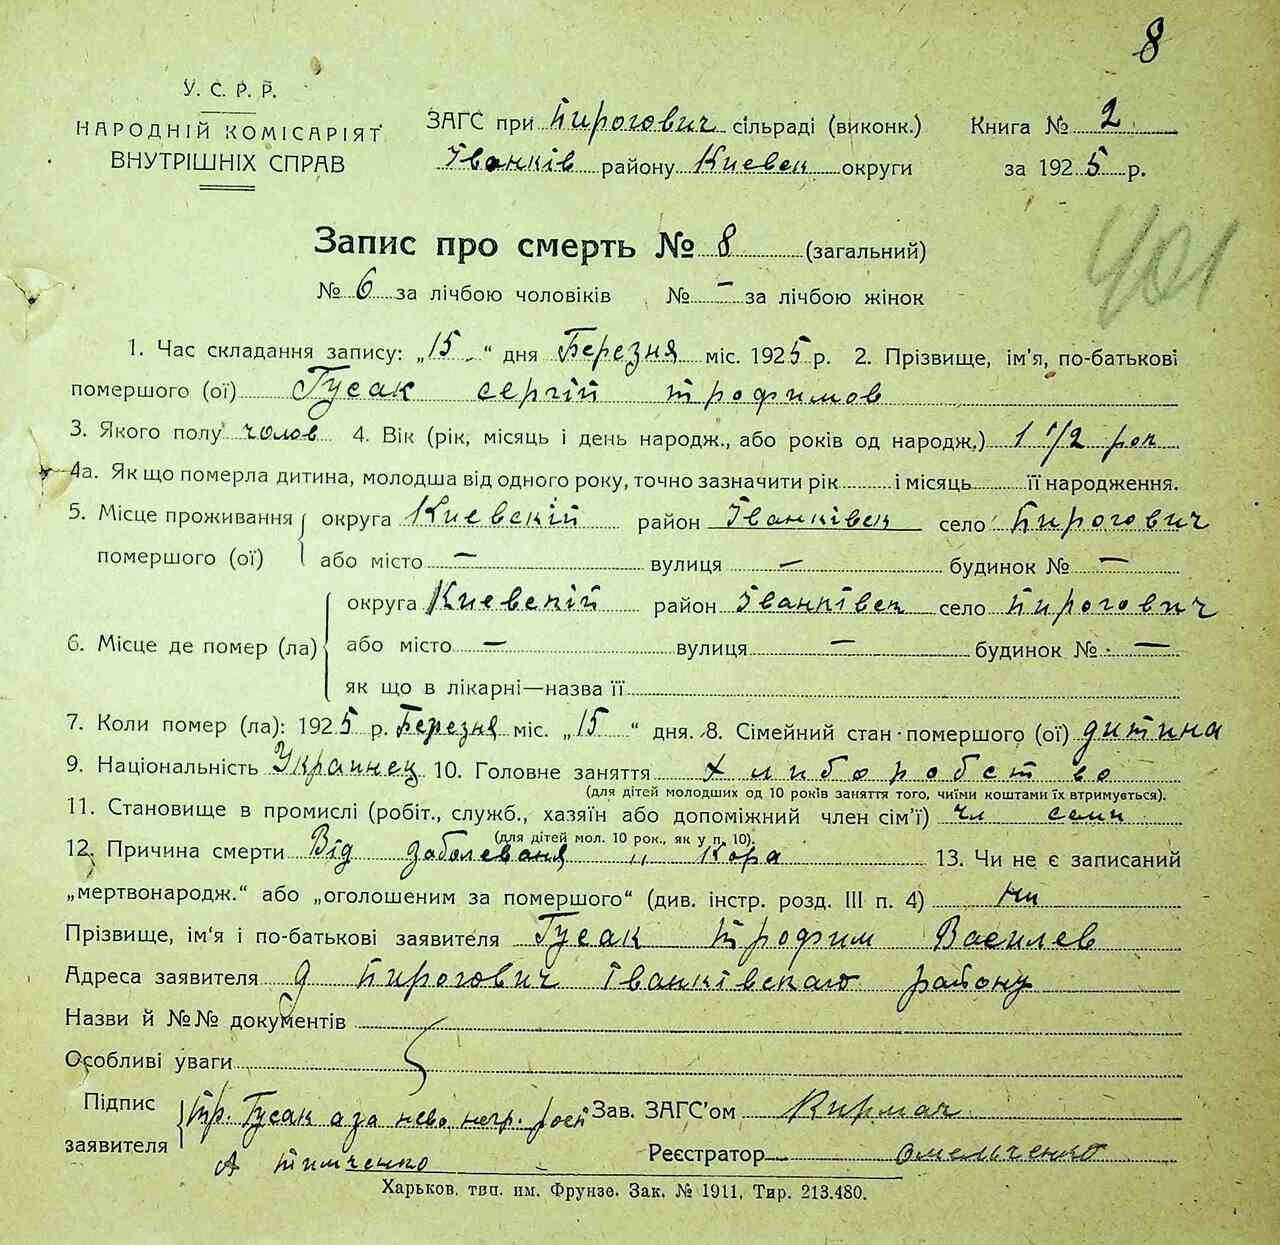 8
У. С. Р. Р.
НАРОДНІЙ КОМІСАРІЯТ
ВНУТРІШНІХ СПРАВ
ЗАГС при Пирогович сільраді (виконк.)
Іванків району Киевск округи
Книга № 2
за 1925 р.
401
Запис про смерть № 8 (загальний)
№ 6 за лічбою чоловіків № – за лічбою жінок
1. Час складання запису: „15“ дня Березня міс. 1925 р. 2. Прізвище, ім'я, по-батькові
помершого (ої) Гусак сергій трофимов
3. Якого полу чолов 4. Вік (рік, місяць і день народж., або років од народж.) 1 1/2 рок
4а. Як що померла дитина, молодша від одного року, точно зазначити рік і місяць її народження.
5. Місце проживання помершого (ої) округа Киевскій район Іванківск село Пирогович
або місто – вулиця – будинок № –
6. Місце де помер (ла) округа Киевскій район Іванківск село Пирогович
або місто – вулиця – будинок № –
як що в лікарні—назва її
7. Коли помер (ла): 1925 р. Березня міс. „15“ дня. 8. Сімейний стан помершого (ої) дитина
9. Національність Украинец 10. Головне заняття хлиборобство
(для дітей молодших од 10 років заняття того, чиїми коштами їх втримується).
11. Становище в промислі (робіт., служб., хазяїн або допоміжний член сім'ї) чл семи
(для дітей мол. 10 рок., як у п. 10).
12. Причина смерти Від заболеваня „ Кора 13. Чи не є записаний
„мертвонародж.“ або „оголошеним за помершого“ (див. інстр. розд. III п. 4) ни
Прізвище, ім'я і по-батькові заявителя Гусак Трофим Василев
Адреса заявителя д Пирогович Іванківскаго району
Назви й №№ документів
Особливі уваги
Підпис заявителя Тр. Гусак а за нево негр. росп
А Тимченко
Зав. ЗАГС'ом
Реєстратор Омельченко
Харьков, тип. им. Фрунзе. Зак. № 1911, Тир. 213.480.